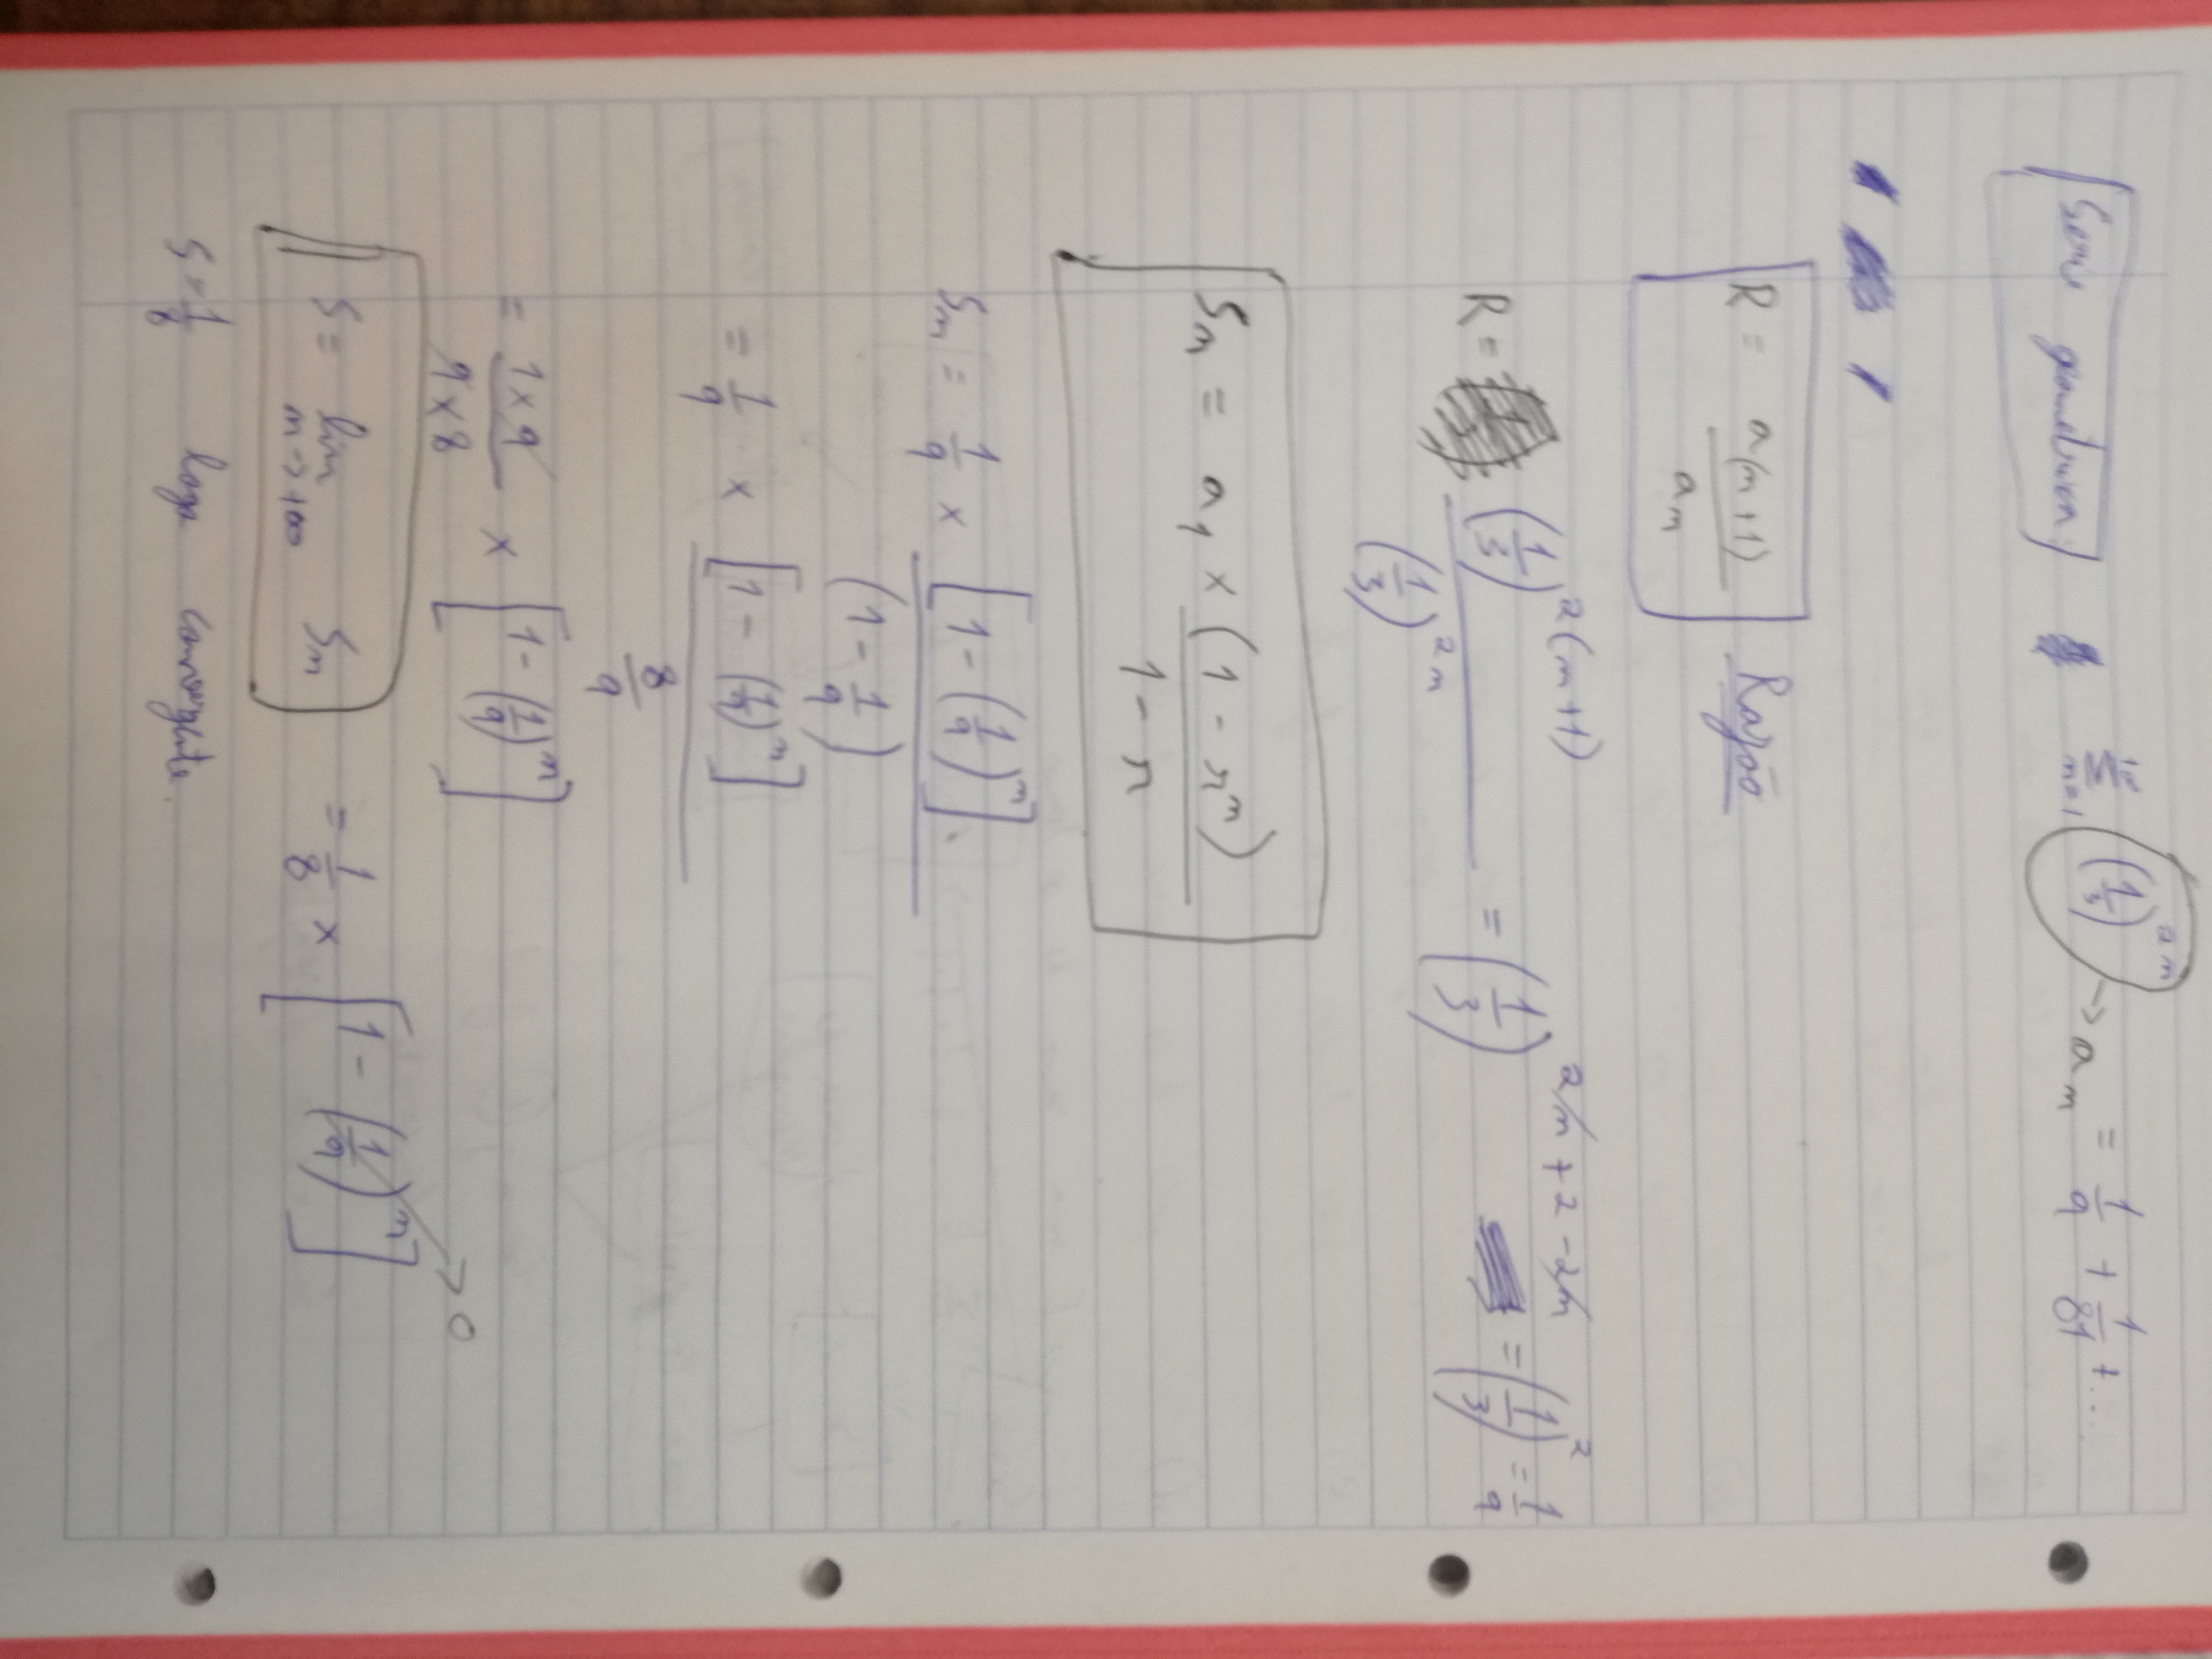 Serie geometrica ∑_{n=1}^{+∞} (1/3)^{2n} → a_n = 1/9 + 1/81 + ...
R = a(n+1) / a_n Razão
R = (1/3)^{2(n+1)} / (1/3)^{2n} = (1/3)^{2n+2-2n} = (1/3)^2 = 1/9
S_n = a_1 × (1 - r^n) / 1 - r
S_n = 1/9 × [1 - (1/9)^n] / (1 - 1/9)
= 1/9 × [1 - (1/9)^n] / 8/9
= 1×9 / 9×8 × [1 - (1/9)^n]
S = lim_{n→+∞} S_n = 1/8 × [1 - (1/9)^n] → 0
S = 1/8 logo convergente.